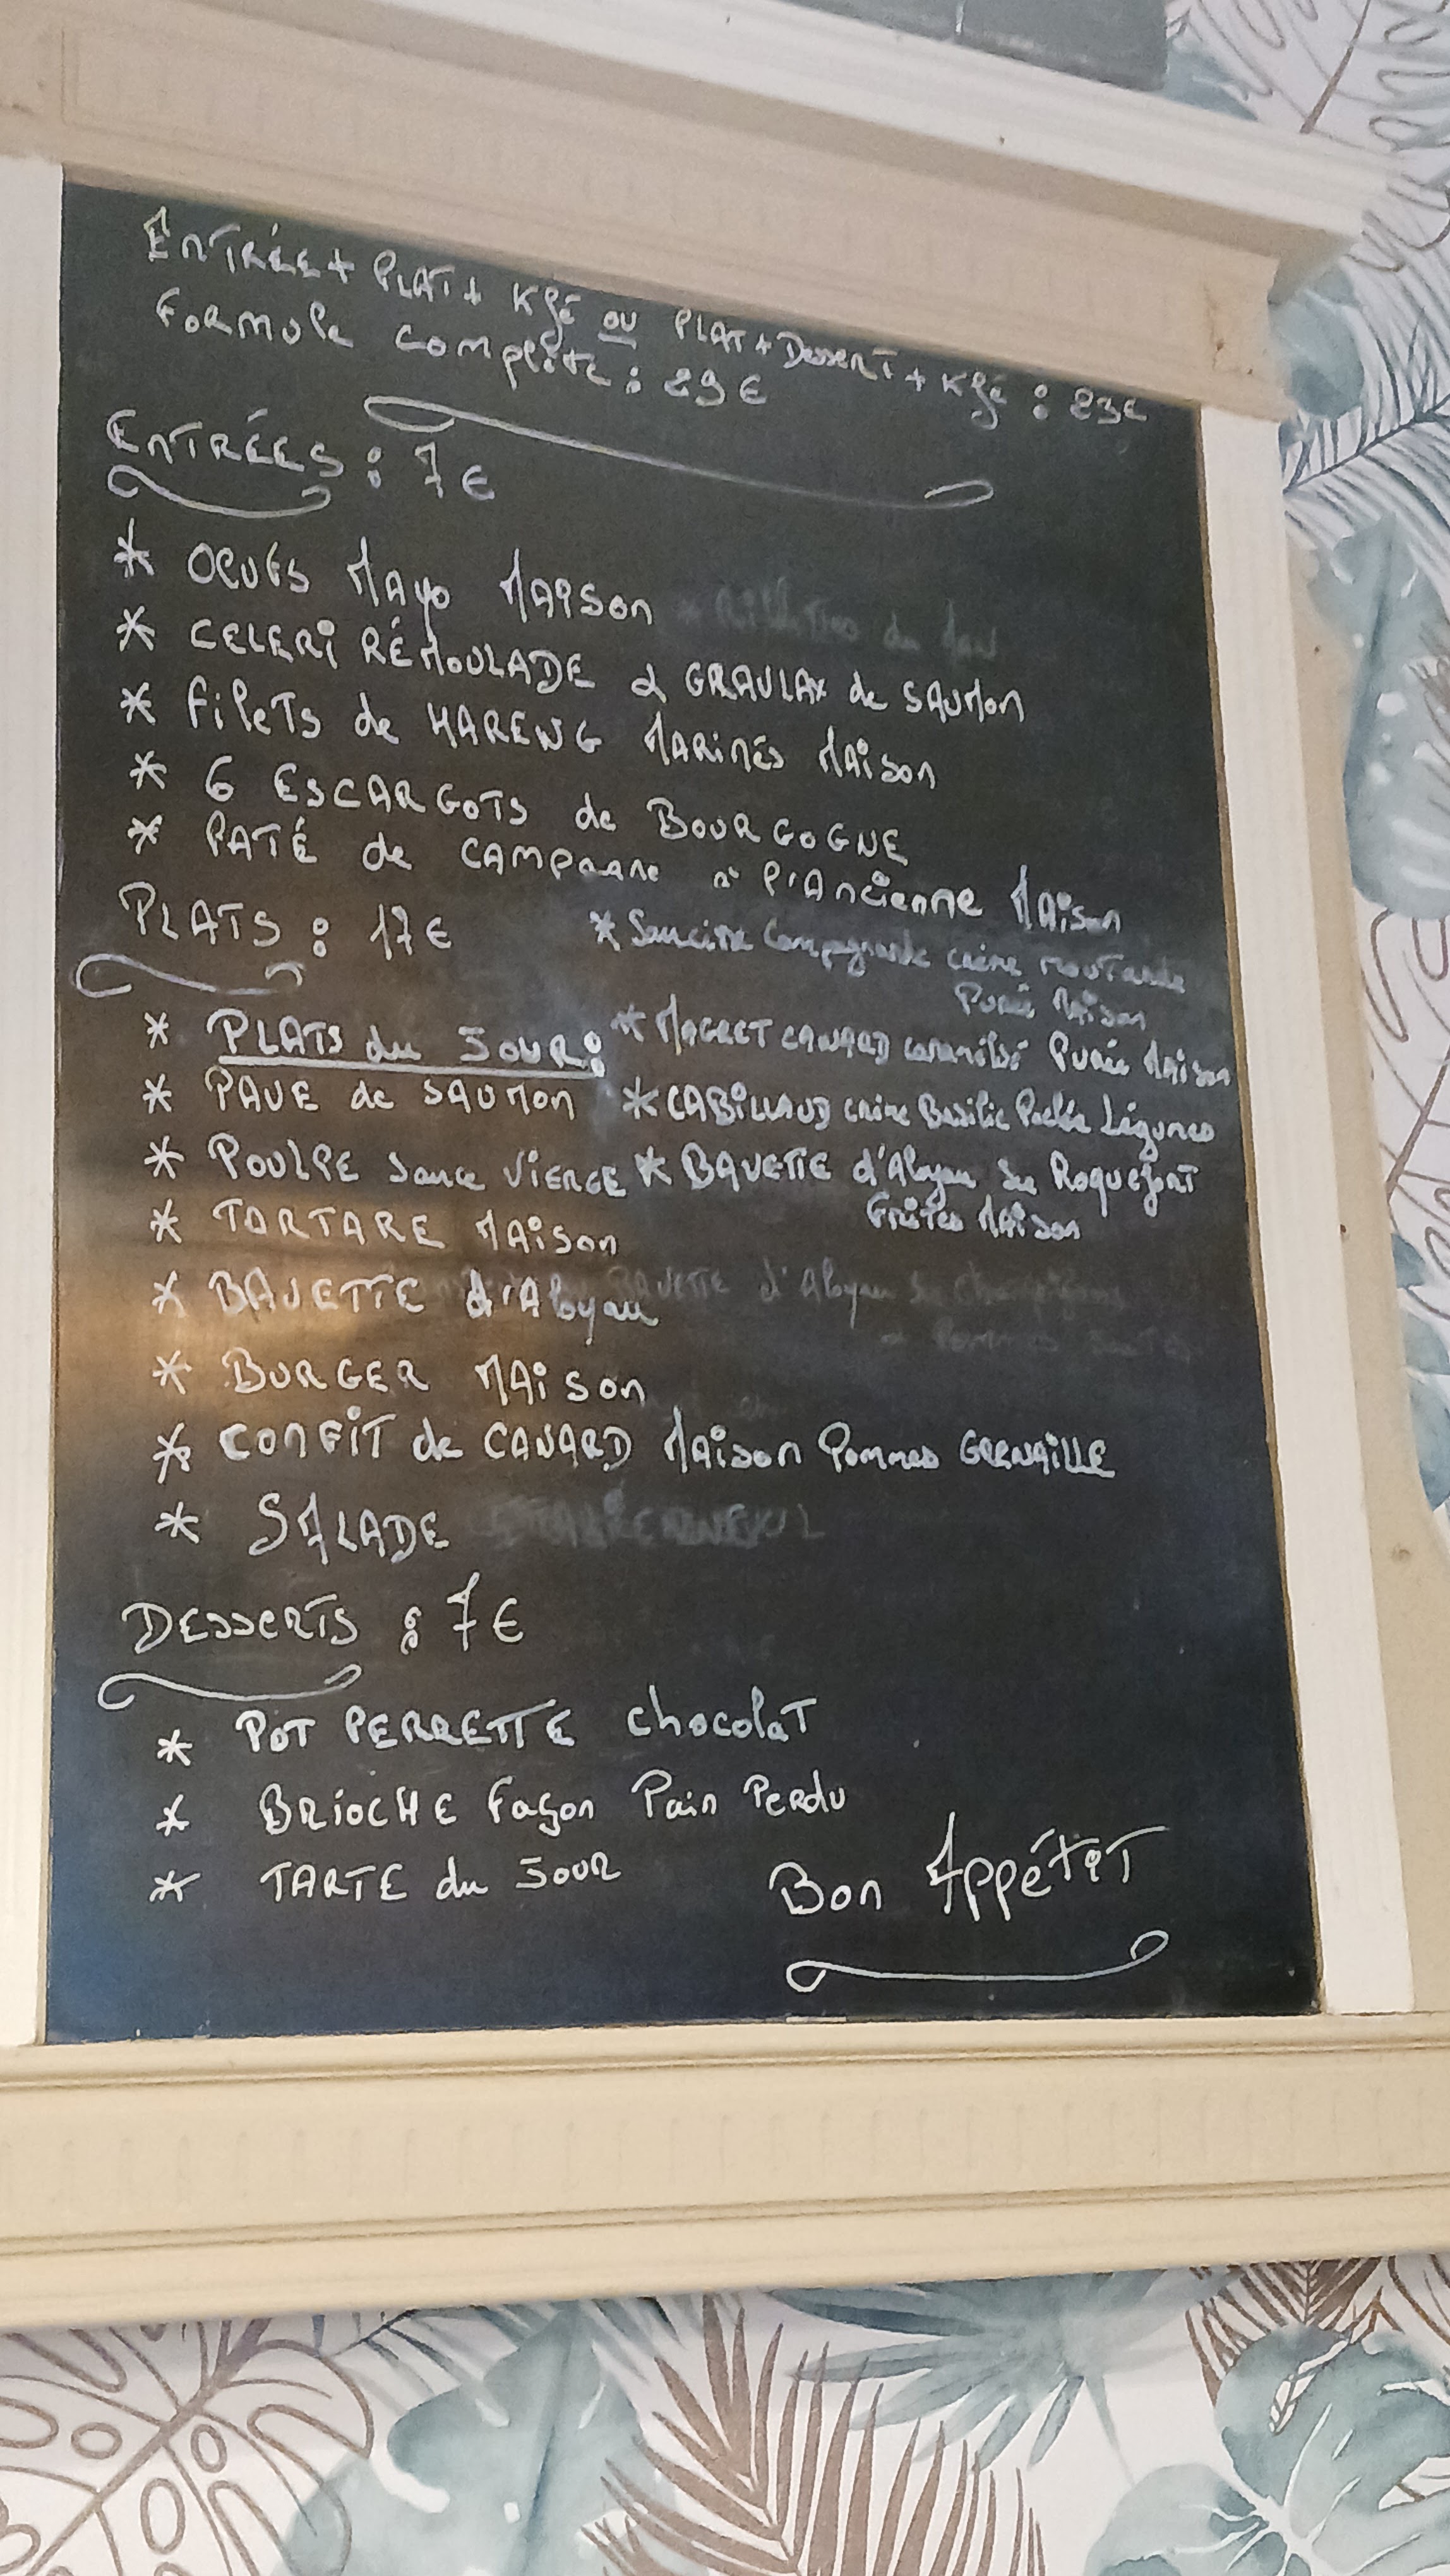 ENTRÉE + PLAT + Kfé ou PLAT + Dessert + Kfé : 23€
Formule complète : 29€
ENTRÉES : 7€
* OEUFS MAYO MAISON
* CELERI RÉMOULADE & GRAULAX de SAUMON
* Filets de HARENG MARinés MAison
* 6 ESCARGOTS de BOURGOGNE
* PATÉ de CAMPAGNE à l'Ancienne MAison
PLATS : 17€
* Saucisse Campagnarde crème moutarde
Purée Maison
* PLATS du JOUR :
* MAGRET CANARD caramélisé Purée Maison
* PAVE de SAUMON
* CABILLAUD crème Basilic Poêlée Légumes
* POULPE sauce VIERGE
* BAVETTE d'Aloyau Sce Roquefort
Frites MAison
* TARTARE MAison
* BAVETTE d'Aloyau
* BURGER MAison
* CONFIT de CANARD MAison Pommes GRENAILLE
* SALADE
DESSERTS : 7€
* POT PERRETTE chocolat
* BRIOCHE Façon Pain Perdu
* TARTE du JOUR
Bon Appétit